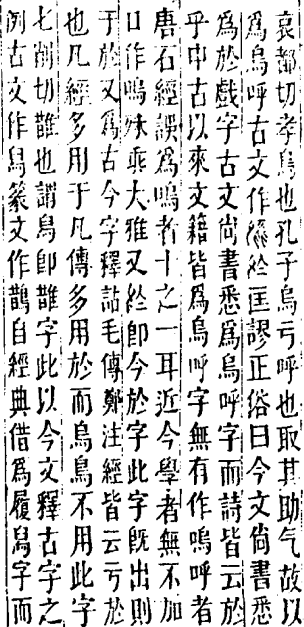 哀都切孝鳥也孔子烏亏呼也取其助气故以
爲烏呼古文作於匡謬正俗曰今文尚書悉
爲於戲字古文尚書悉爲烏呼字而詩皆云於
乎中古以來文籍皆爲烏呼字無有作嗚呼者
唐石經誤爲嗚者十之一耳近今學者無不加
口作嗚殊乖大雅又於卽今於字此字旣出則
于於又爲古今字釋詁毛傳鄭注經皆云亏於
也凡經多用于凡傳多用於而烏鳥不用此字
七削切䧿也謂舄卽䧿字此以今文釋古字之
例古文作舄篆文作鵲自經典借爲履舄字而